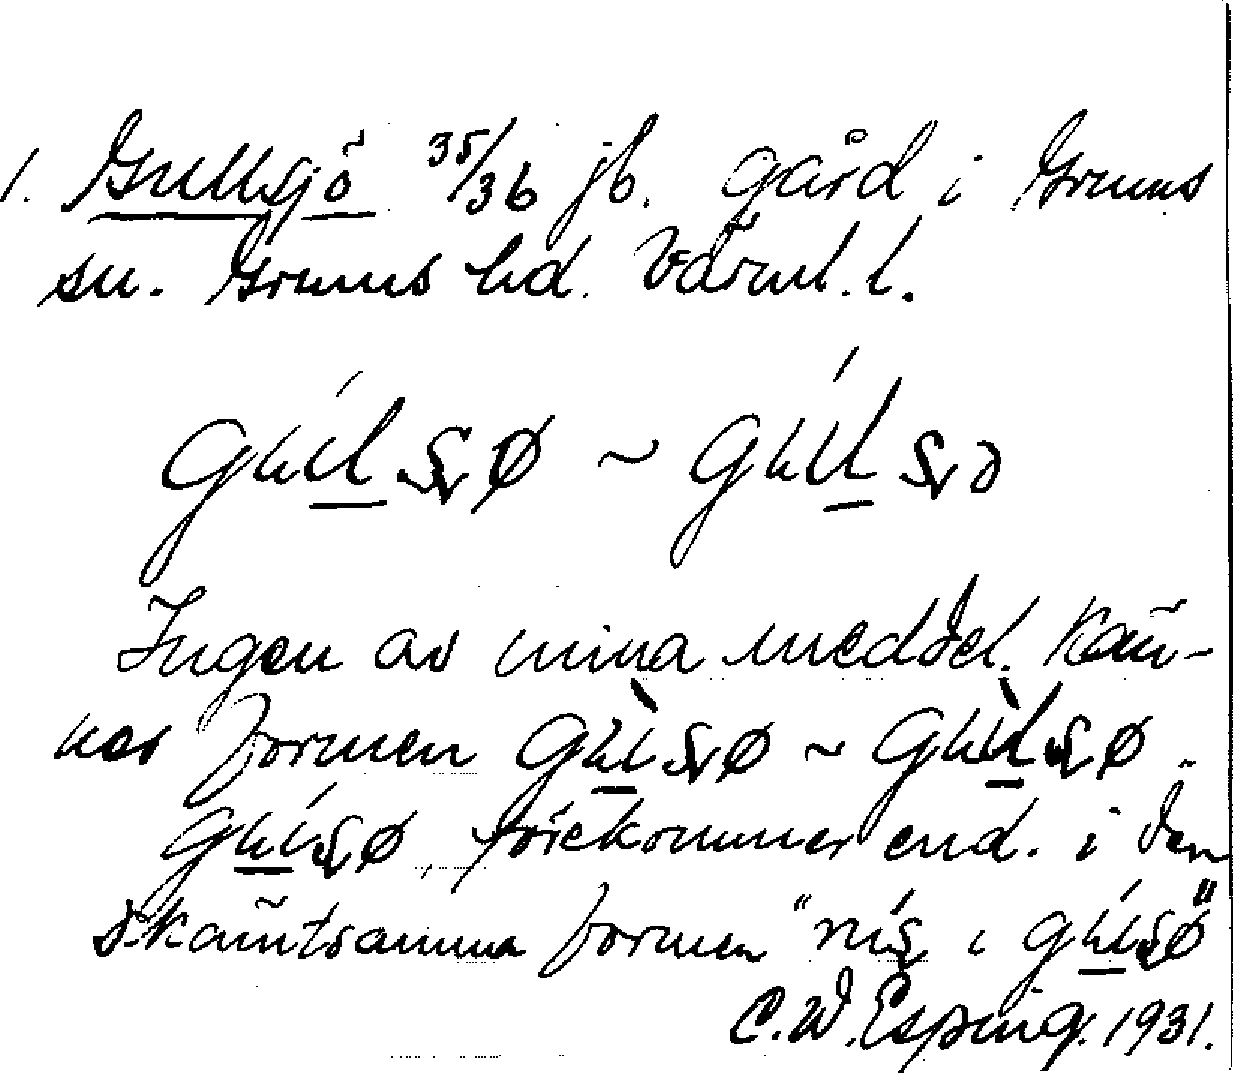 1. Gullsjö 35/36 jb. gård i Grums
sn. Grums hd. Värml. l.
gúlʂø ~ gúlʂə
Ingen av mina meddel. kän-
ner formen gùʂø ~ gùlʂø.
gúʂø förekommer end. i den
skämtsamma formen "
i gúʂø"
C. W. Esping. 1931.